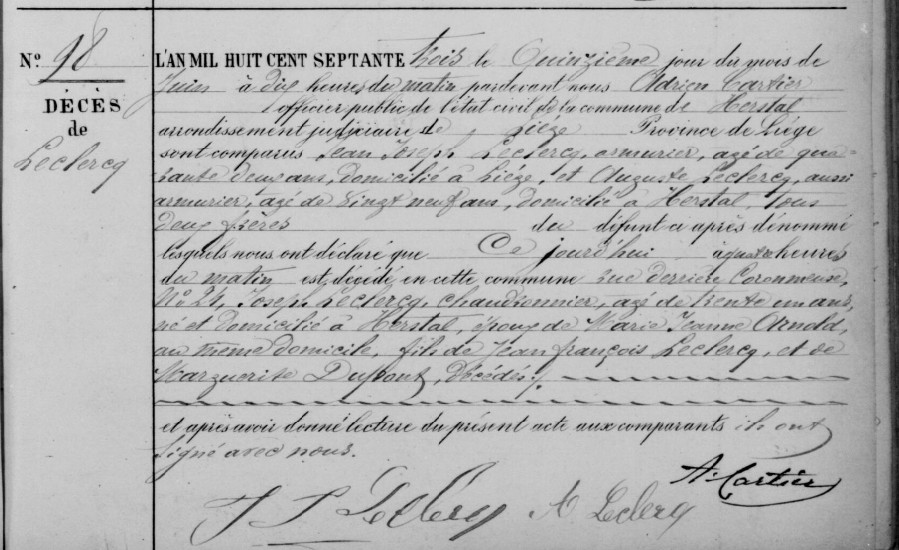 N° 98
DÉCÈS
de
Leclercq
L'AN MIL HUIT CENT SEPTANTE trois le Quinzième jour du mois de
Juin à dix heures du matin pardevant nous Adrien Cartier
officier public de l'état civil de la commune de Herstal
arrondissement judiciaire de Liége Province de Liége
sont comparus Jean Joseph Leclercq, armurier, agé de qua-
rante deux ans, domicilié à Liége, et Auguste Leclercq, aussi
armurier, agé de vingt neuf ans, domicilié à Herstal, tous
deux frères du défunt ci après dénommé
lesquels nous ont déclaré que Ce jourd'hui à quatre heures
du matin est décédé en cette commune rue derrière Coronmeuse,
N° 21, Joseph Leclercq, chaudronnier, agé de trente un ans,
né et domicilié à Herstal, époux de Marie Jeanne Arnold,
au même domicile, fils de Jean françois Leclercq, et de
Marguerite Dupont, décédés.
et après avoir donné lecture du présent acte aux comparants ils ont
signé avec nous.
A. Cartier
J J Leclercq A Leclercq